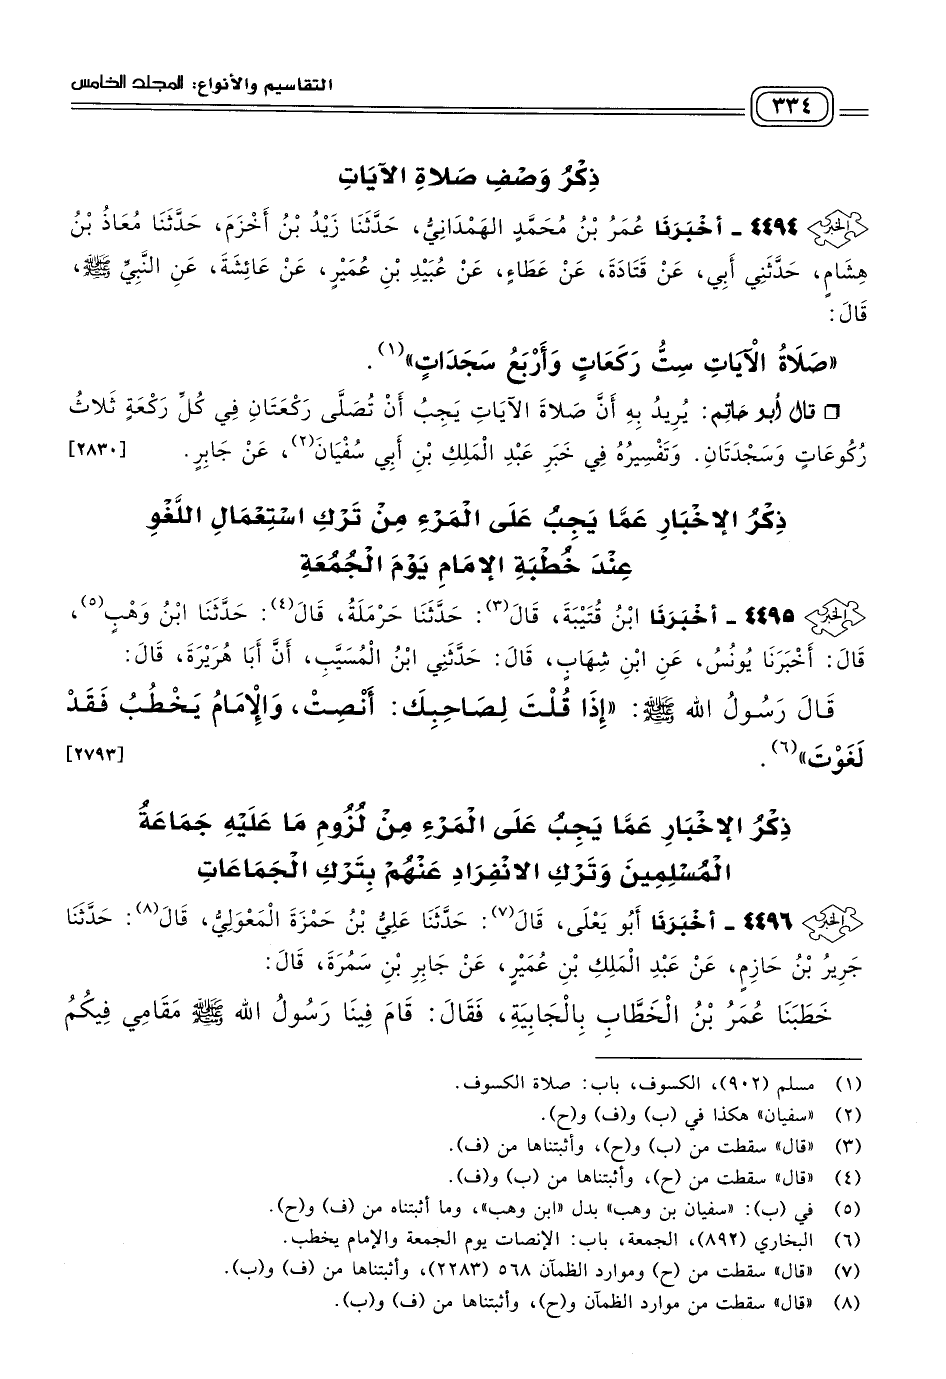 التقاسيم والأنواع: المجلد الخامس
٣٣٤
ذِكْرُ وَصْفِ صَلَاةِ الآيَاتِ
٤٤٩٤ - أَخْبَرَنَا عُمَرُ بْنُ مُحَمَّدٍ الهَمْدَانِيُّ، حَدَّثَنَا زَيْدُ بْنُ أَخْزَمَ، حَدَّثَنَا مُعَاذُ بْنُ
هِشَامٍ، حَدَّثَنِي أَبِي، عَنْ قَتَادَةَ، عَنْ عَطَاءٍ، عَنْ عُبَيْدِ بْنِ عُمَيْرٍ، عَنْ عَائِشَةَ، عَنِ النَّبِيِّ ﷺ،
قَالَ:
«صَلَاةُ الْآيَاتِ سِتُّ رَكَعَاتٍ وَأَرْبَعُ سَجَدَاتٍ»(١).
□ قال أبو حاتم: يُرِيدُ بِهِ أَنَّ صَلاةَ الآيَاتِ يَجِبُ أَنْ تُصَلَّى رَكْعَتَانِ فِي كُلِّ رَكْعَةٍ ثَلاثُ
رُكُوعَاتٍ وَسَجْدَتَانِ. وَتَفْسِيرُهُ فِي خَبَرِ عَبْدِ الْمَلِكِ بْنِ أَبِي سُفْيَانَ(٢)، عَنْ جَابِرٍ. [٢٨٣٠]
ذِكْرُ الإِخْبَارِ عَمَّا يَجِبُ عَلَى الْمَرْءِ مِنْ تَرْكِ اسْتِعْمَالِ اللَّغْوِ
عِنْدَ خُطْبَةِ الإِمَامِ يَوْمَ الْجُمُعَةِ
٤٤٩٥ - أَخْبَرَنَا ابْنُ قُتَيْبَةَ، قَالَ(٣): حَدَّثَنَا حَرْمَلَةُ، قَالَ(٤): حَدَّثَنَا ابْنُ وَهْبٍ(٥)،
قَالَ: أَخْبَرَنَا يُونُسُ، عَنِ ابْنِ شِهَابٍ، قَالَ: حَدَّثَنِي ابْنُ الْمُسَيَّبِ، أَنَّ أَبَا هُرَيْرَةَ، قَالَ:
قَالَ رَسُولُ الله ﷺ: «إِذَا قُلْتَ لِصَاحِبِكَ: أَنْصِتْ، وَالْإِمَامُ يَخْطُبُ فَقَدْ
لَغَوْتَ»(٦). [٢٧٩٣]
ذِكْرُ الإِخْبَارِ عَمَّا يَجِبُ عَلَى الْمَرْءِ مِنْ لُزُومِ مَا عَلَيْهِ جَمَاعَةُ
الْمُسْلِمِينَ وَتَرْكِ الانْفِرَادِ عَنْهُمْ بِتَرْكِ الْجَمَاعَاتِ
٤٤٩٦ - أَخْبَرَنَا أَبُو يَعْلَى، قَالَ(٧): حَدَّثَنَا عَلِيُّ بْنُ حَمْزَةَ الْمَعْوَلِيُّ، قَالَ(٨): حَدَّثَنَا
جَرِيرُ بْنُ حَازِمٍ، عَنْ عَبْدِ الْمَلِكِ بْنِ عُمَيْرٍ، عَنْ جَابِرِ بْنِ سَمُرَةَ، قَالَ:
خَطَبَنَا عُمَرُ بْنُ الْخَطَّابِ بِالْجَابِيَةِ، فَقَالَ: قَامَ فِينَا رَسُولُ الله ﷺ مَقَامِي فِيكُمُ
(١) مسلم (٩٠٢)، الكسوف، باب: صلاة الكسوف.
(٢) «سفيان» هكذا في (ب) و(ف) و(ح).
(٣) «قال» سقطت من (ب) و(ح)، وأثبتناها من (ف).
(٤) «قال» سقطت من (ح)، وأثبتناها من (ب) و(ف).
(٥) في (ب): «سفيان بن وهب» بدل «ابن وهب»، وما أثبتناه من (ف) و(ح).
(٦) البخاري (٨٩٢)، الجمعة، باب: الإنصات يوم الجمعة والإمام يخطب.
(٧) «قال» سقطت من (ح) وموارد الظمآن ٥٦٨ (٢٢٨٣)، وأثبتناها من (ف) و(ب).
(٨) «قال» سقطت من موارد الظمآن و(ح)، وأثبتناها من (ف) و(ب).